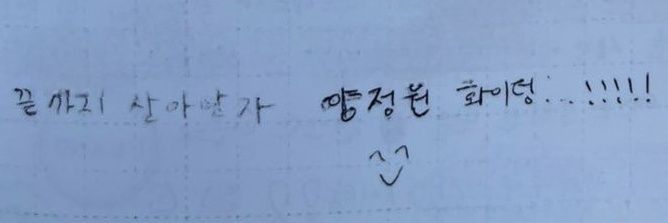 끝까지 살아남자 양정원 화이팅...!!!!!
^^